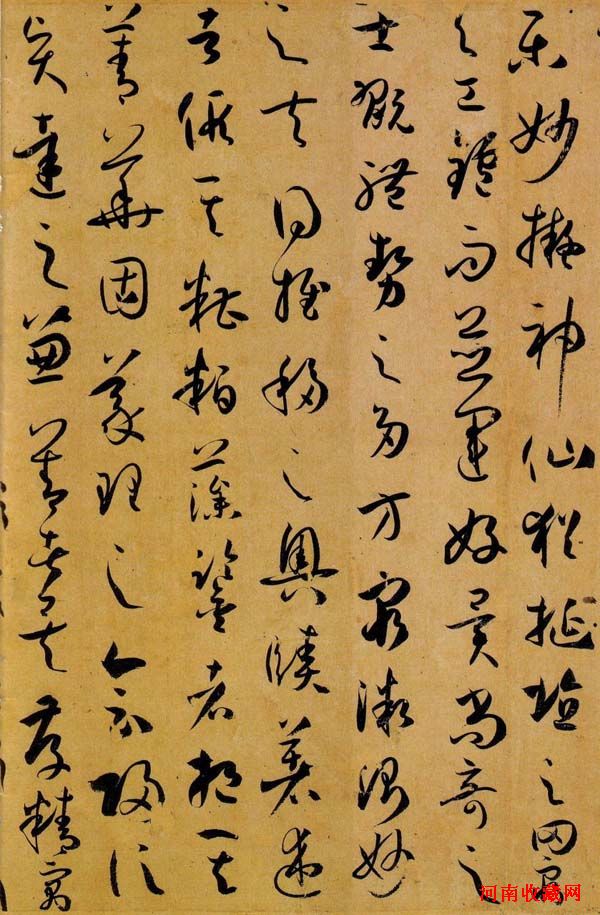 樂妙擬神仙猶挻埴之罔窮
與工鑪而並運好異尚奇之
士翫體勢之多方窮微測妙
之夫得推移之奧賾著述
者假其糟粕藻鑒者挹其
菁華固義理之會歸信
賢達之兼善者矣存精寓
河南收藏网